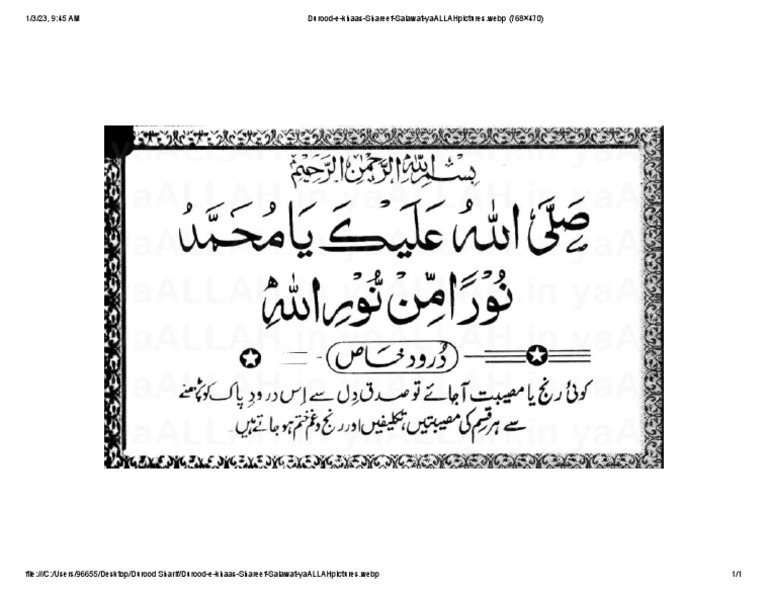 1/3/23, 9:45 AM
Durood-e-khaas-Shareef-Salawat-yaALLAHpictures.webp (768×470)
بِسْمِ اللهِ الرَّحْمٰنِ الرَّحِيْمِ
صَلَّی اللهُ عَلَيْكَ يَا مُحَمَّدُ
نُوْرًا مِّنْ نُّوْرِ اللهِ
دُرود خاص
کوئی رنج یا مصیبت آجائے تو صدق دِل سے اِس درودِ پاک کو پڑھنے
سے ہر قسم کی مصیبتیں، تکلیفیں اور رنج و غم ختم ہو جاتے ہیں۔
yaALLAH.in
file:///C:/Users/96655/Desktop/Durood Sharif/Durood-e-khaas-Shareef-Salawat-yaALLAHpictures.webp
1/1